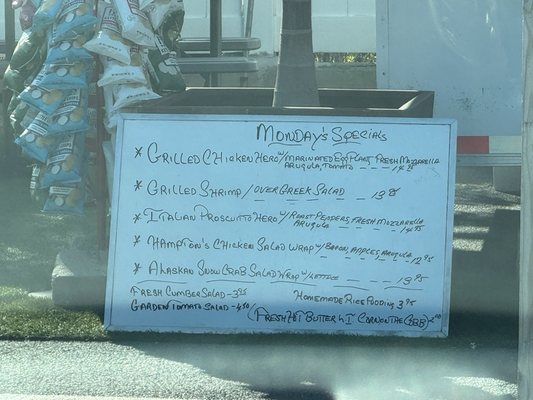 Monday's Specials
* Grilled Chicken Hero w/ Marinated Eggplant Fresh Mozzarella
Arugula, Tomato --- 14.95
* Grilled Shrimp / over Greek Salad --- 13.95
* Italian Prosciutto Hero w/ Roast Peppers, Fresh Mozzarella
Arugula --- 14.95
* Hampton's Chicken Salad Wrap w/ Bacon, Apples, Arugula 12.95
* Alaskan Snow Crab Salad Wrap w/ Lettuce --- 13.95
Fresh Cumber Salad - 3.95 Homemade Rice Pooding 3.95
Garden Tomato Salad - 4.50 (Fresh Hot Butter Corn on the Cob)